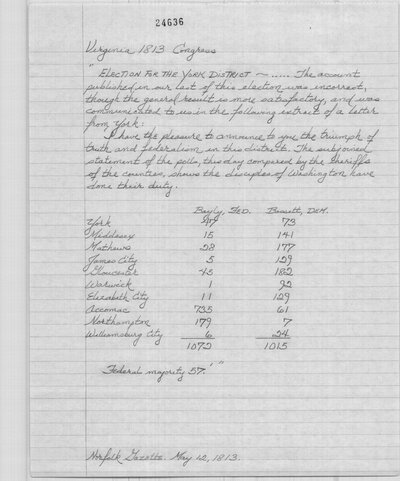 24636
Virginia 1813 Congress
"
ELECTION FOR THE YORK DISTRICT ~ ..... The account
published in our last of this election was incorrect,
though the general result is more satisfactory, and was
communicated to us in the following extract of a letter
from York:
I have the pleasure to announce to you the triumph of
truth and federalism in this district. The subjoined
statement of the polls, this day compared by the sheriffs
of the counties, shows the disciples of Washington have
done their duty.
Bayly, FED. Bassett, DEM.
York 47 73
Middlesex 15 141
Mathews 28 177
James City 5 129
Gloucester 45 182
Warwick 1 92
Elizabeth City 11 129
Accomac 735 61
Northampton 179 7
Williamsburg City 6 24
1072 1015
Federal majority 57.' "
Norfolk Gazette. May 12, 1813.